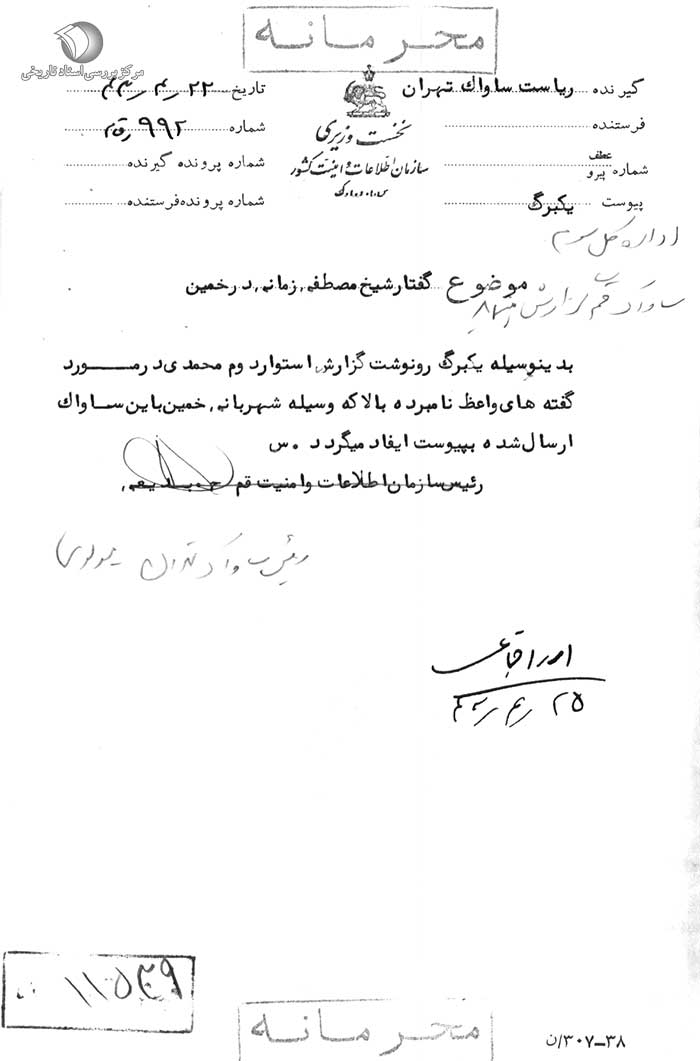 محرمانه
مرکز بررسی اسناد تاریخی
گیرنده ریاست ساواك تهران
تاریخ ۲۲
فرستنده
شماره ۹۹۲
نخست وزیری
سازمان اطلاعات و امنیت کشور
س.ا.و.ا.ک
عطف
شماره پیرو
شماره پرونده گیرنده
پیوست یکبرگ
شماره پرونده فرستنده
اداره کل سوم
موضوع گفتار شیخ مصطفی زمانی در خمین
ساواک قم گزارش
بدینوسیله یکبرگ رونوشت گزارش استوار دوم محمدی در مورد
گفته های واعظ نامبرده بالا که وسیله شهربانی خمین باین ساواك
ارسال شده بپیوست ایفاد میگردد . س
رئیس سازمان اطلاعات و امنیت قم
رئیس ساواک تهران مولوی
۲۵
محرمانه
۳۰۷-۳۸/ن